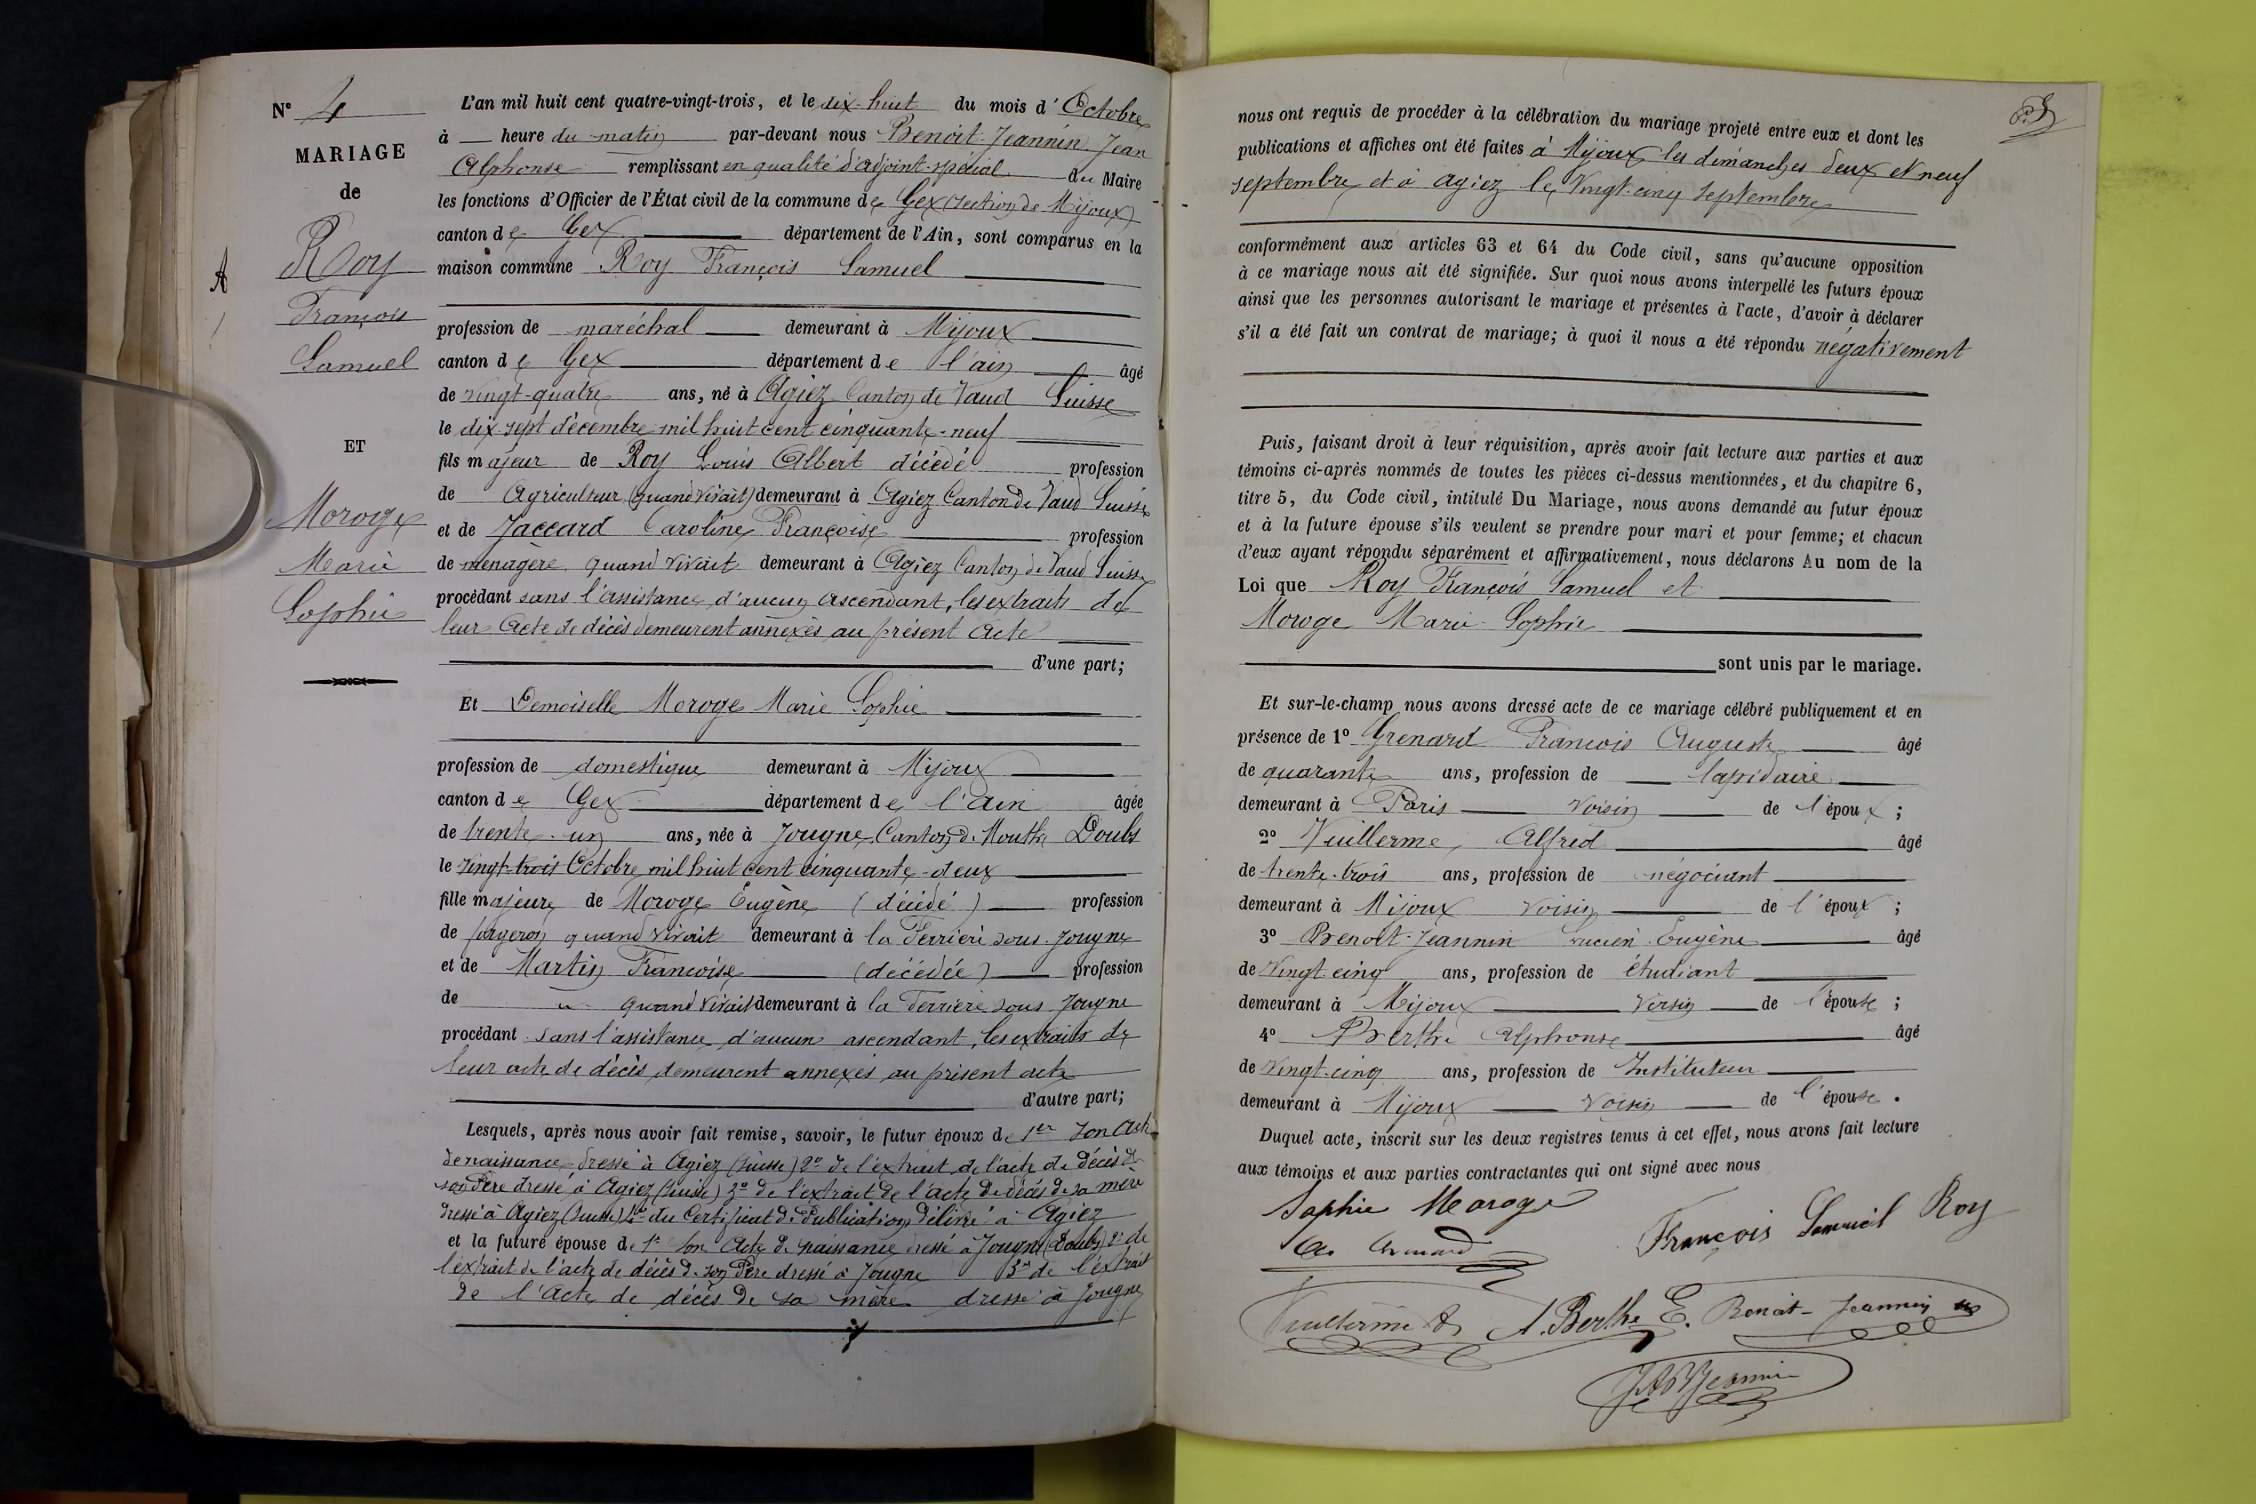 N° 4
MARIAGE
de
Roy
François
Samuel
ET
Moroge
Marie
Sophie
A
L'an mil huit cent quatre-vingt-trois, et le dix-huit du mois d'Octobre
à — heure du matin par-devant nous Benoit-Jeannin Jean
Alphonse remplissant en qualité d'adjoint-spécial du Maire
les fonctions d'Officier de l'État civil de la commune de Gex (section de Mijoux)
canton de Gex département de l'Ain, sont comparus en la
maison commune Roy François Samuel
profession de maréchal demeurant à Mijoux
canton de Gex département de l'ain âgé
de vingt-quatre ans, né à Agiez Canton de Vaud Suisse
le dix sept décembre mil huit cent cinquante-neuf
fils majeur de Roy Louis Albert décédé profession
de Agriculteur (quand vivait) demeurant à Agiez Canton de Vaud Suisse
et de Jaccard Caroline Françoise profession
de ménagère quand vivait demeurant à Agiez Canton de Vaud Suisse
procédant sans l'assistance d'aucun ascendant, les extraits de
leur Acte de décès demeurent annexés au présent Acte
d'une part;
Et Demoiselle Moroge Marie Sophie
profession de domestique demeurant à Mijoux
canton de Gex département de l'ain âgée
de trente-un ans, née à Jougne Canton de Mouthe Doubs
le vingt-trois Octobre mil huit cent cinquante-deux
fille majeure de Moroge Eugène (décédé) profession
de forgeron quand vivait demeurant à la Ferrière sous Jougne
et de Martin Françoise (décédée) profession
de quand vivait demeurant à la Ferrière sous Jougne
procédant sans l'assistance d'aucun ascendant, les extraits de
leur acte de décès demeurent annexés au présent acte
d'autre part;
Lesquels, après nous avoir fait remise, savoir, le futur époux de 1er son Acte
de naissance dressé à Agiez (Suisse) 2° de l'extrait de l'acte de décès de
son Père dressé à Agiez (Suisse) 3° de l'extrait de l'acte de décès de sa mère
dressé à Agiez (Suisse) 4° du Certificat de Publication délivré à Agiez
et la future épouse de 1° son Acte de naissance dressé à Jougne (Doubs) 2° de
l'extrait de l'acte de décès de son Père dressé à Jougne 3° de l'extrait
de l'Acte de décès de sa mère dressé à Jougne
nous ont requis de procéder à la célébration du mariage projeté entre eux et dont les
publications et affiches ont été faites à Mijoux les dimanches deux et neuf
septembre et à Agiez le vingt-cinq septembre
conformément aux articles 63 et 64 du Code civil, sans qu'aucune opposition
à ce mariage nous ait été signifiée. Sur quoi nous avons interpellé les futurs époux
ainsi que les personnes autorisant le mariage et présentes à l'acte, d'avoir à déclarer
s'il a été fait un contrat de mariage; à quoi il nous a été répondu négativement
Puis, faisant droit à leur réquisition, après avoir fait lecture aux parties et aux
témoins ci-après nommés de toutes les pièces ci-dessus mentionnées, et du chapitre 6,
titre 5, du Code civil, intitulé Du Mariage, nous avons demandé au futur époux
et à la future épouse s'ils veulent se prendre pour mari et pour femme; et chacun
d'eux ayant répondu séparément et affirmativement, nous déclarons Au nom de la
Loi que Roy François Samuel et
Moroge Marie Sophie
sont unis par le mariage.
Et sur-le-champ nous avons dressé acte de ce mariage célébré publiquement et en
présence de 1° Grenard François Auguste âgé
de quarante ans, profession de lapidaire
demeurant à Paris voisin de l'époux;
2° Vuillerme Alfred âgé
de trente-trois ans, profession de négociant
demeurant à Mijoux voisin de l'époux;
3° Benoit-Jeannin Lucien Eugène âgé
de vingt cinq ans, profession de étudiant
demeurant à Mijoux voisin de l'épouse;
4° Berthe Alphonse âgé
de vingt-cinq ans, profession de Instituteur
demeurant à Mijoux voisin de l'épouse.
Duquel acte, inscrit sur les deux registres tenus à cet effet, nous avons fait lecture
aux témoins et aux parties contractantes qui ont signé avec nous
Sophie Maroge
François Samuel Roy
Vuillerme A. A. Berthe E. Benoit-Jeannin